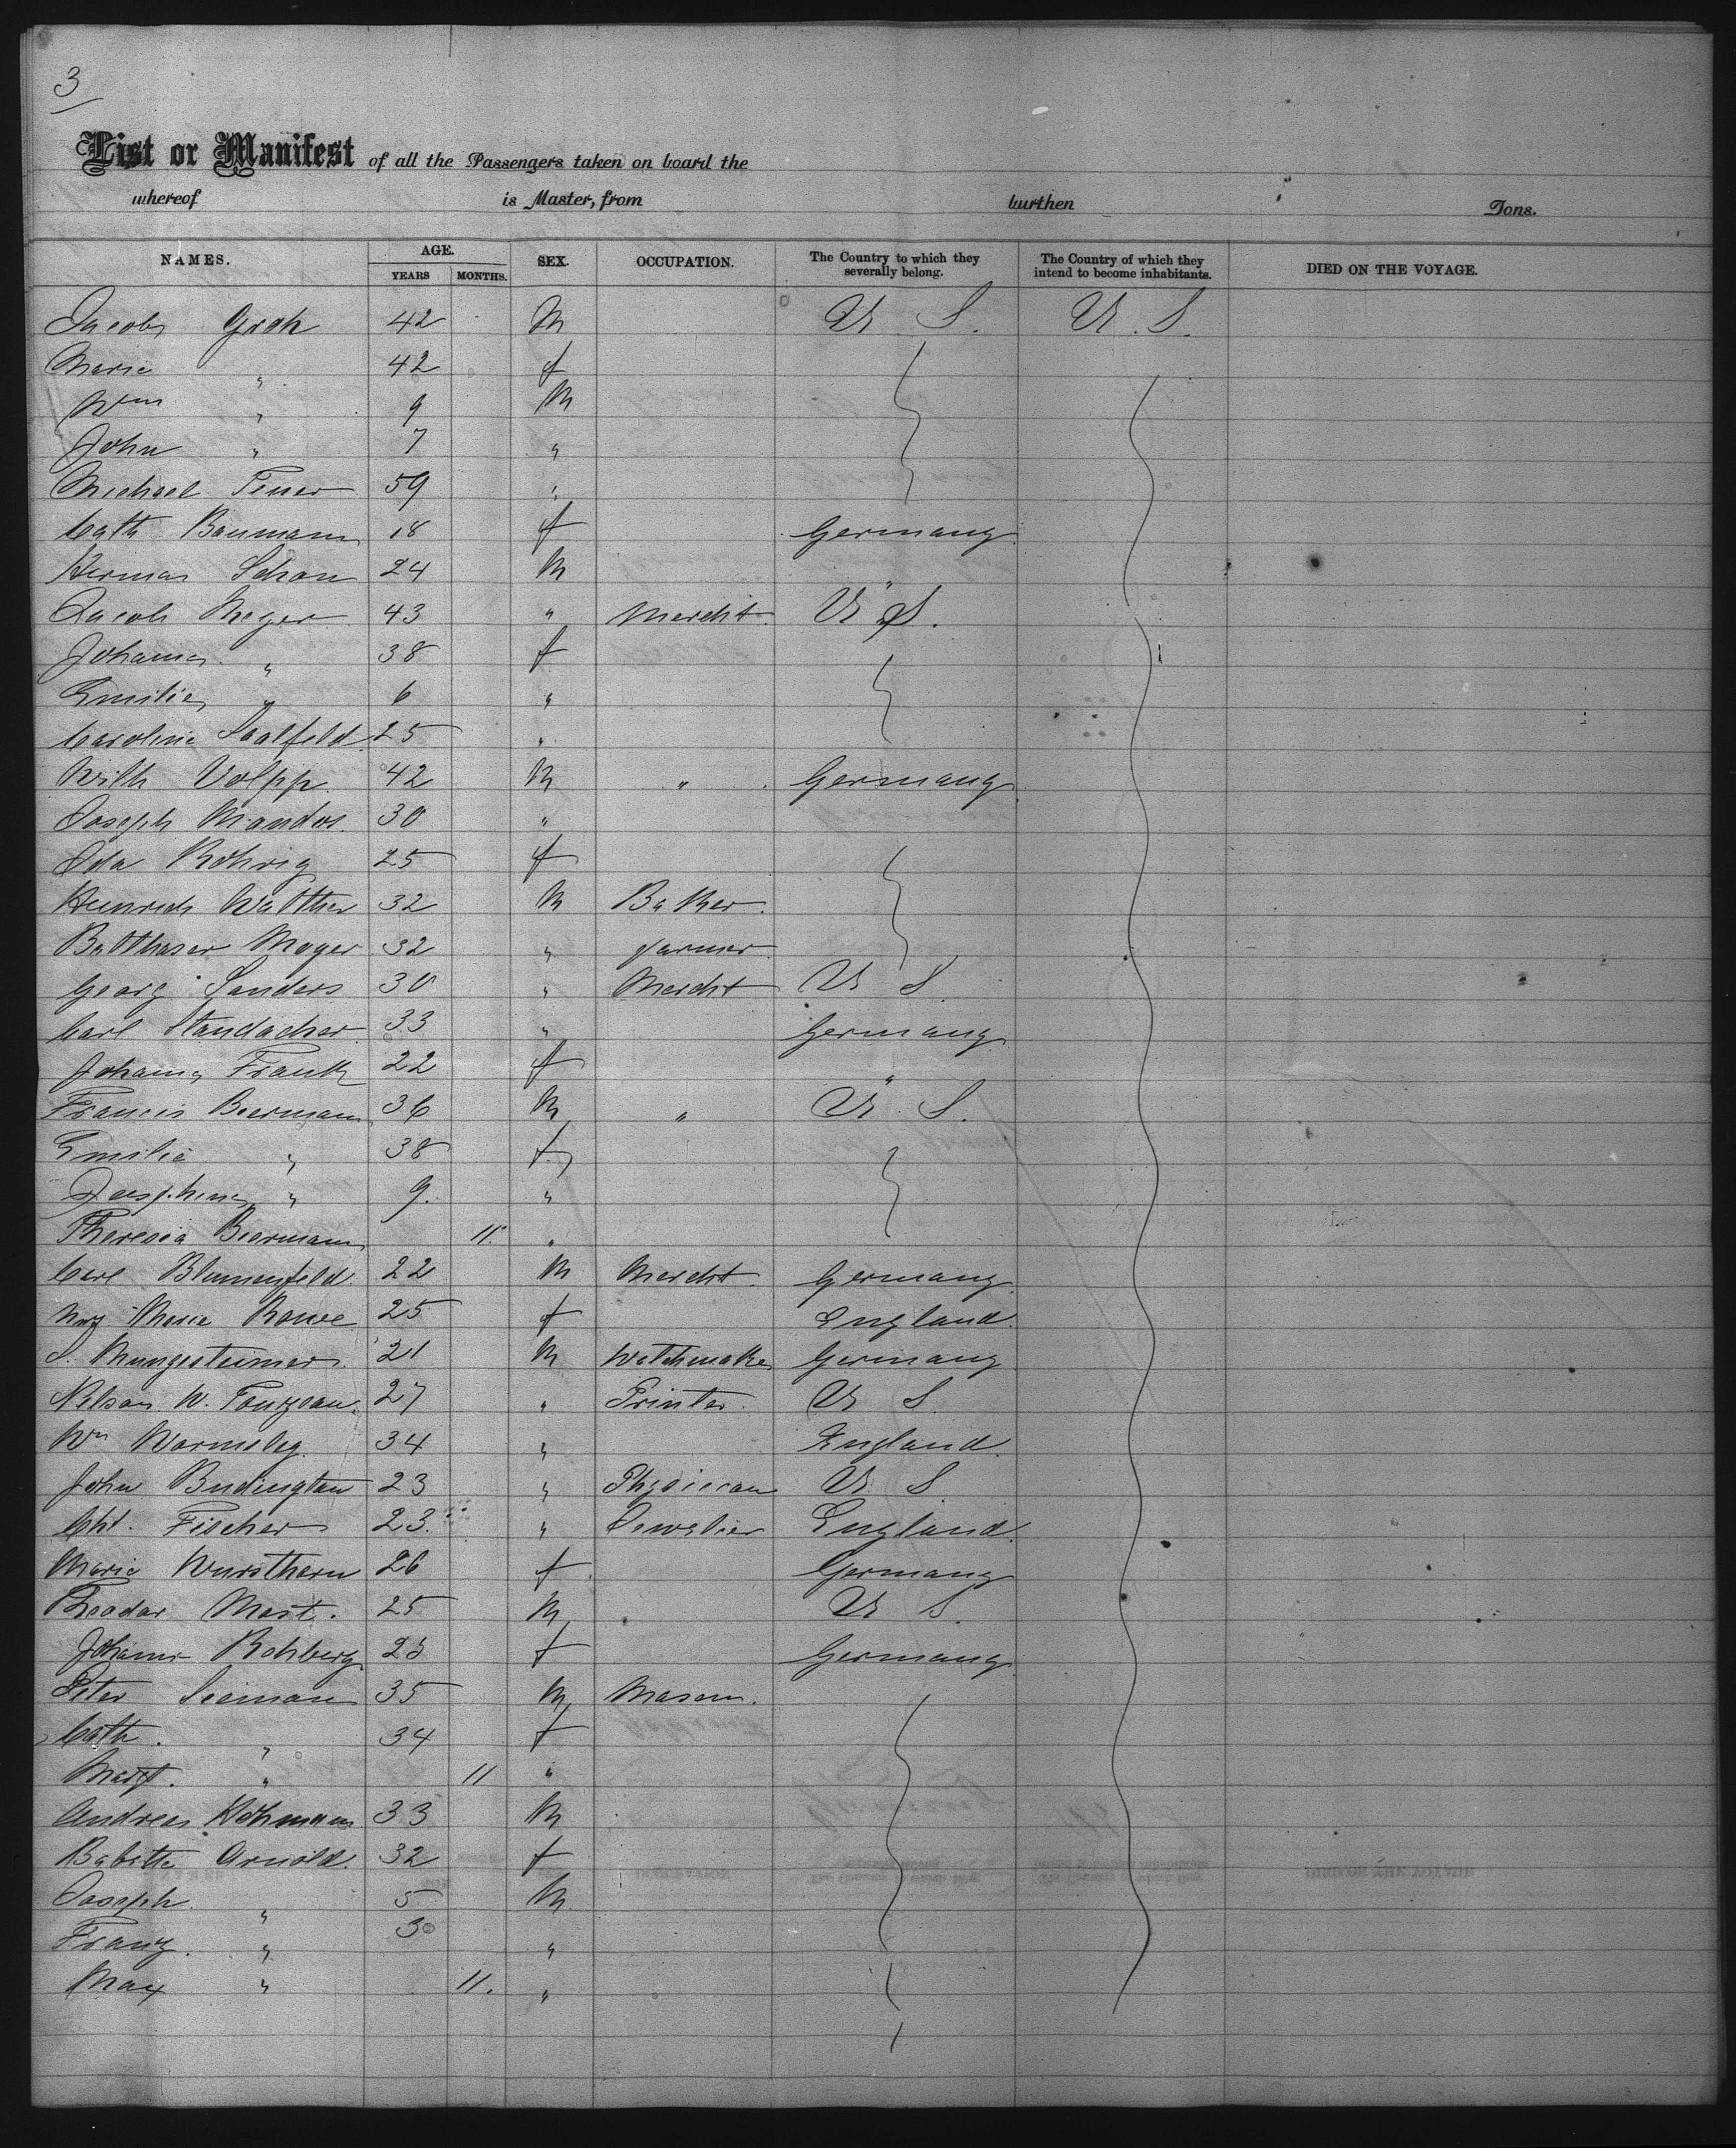 3
List or Manifest of all the Passengers taken on board the
whereof is Master, from burthen Tons.
NAMES. AGE. YEARS MONTHS. SEX. OCCUPATION. The Country to which they severally belong. The Country of which they intend to become inhabitants. DIED ON THE VOYAGE.
Jacob Groh 42 M U. S. U. S.
Marie " 42 f
Wm " 9 M
John " 7 "
Michael 59 "
Cath Baumann 18 f Germany
Herman Schon 24 M "
Jacob Meyer 43 " Mercht U S.
Johanna " 38 f
Emilie " 6 "
Caroline Saalfeld 25 "
Wilh Volpp. 42 M " Germany
Joseph Mandos. 30 "
Ida Rohrig 25 f
Heinrich Walther 32 M Baker.
Balthaser Mayer 32 " farmer
Georg Sanders 30 " Mercht U S.
Carl Standacher 33 " Germany
Johanna Frank 22 f "
Francis Beermann 36 M " U. S.
Emilie " 38 f
Josephine " 9. "
Theresia Beermann 11. "
Carl Blumenfeld. 22 M Mercht. Germany
Maria Rowe 25 f England.
S. Mungesteimer. 21 M Watchmaker Germany
Nelson W. 27 " Printer. U S.
Wm Warmsley. 34 " England.
John Budington 23 " Physician U S
Cht. Fischer 23. " Jewelier England.
Marie Wursthern 26 f Germany
Theodor Mast. 25 M U S.
Johanne Rohberg 25 f Germany
Peter Seemann 35 M Mason.
Cath. " 34 f
Margt. " 11 "
Andreas Hohmann 33 M
Babitte Arnold. 32 f
Joseph. " 5 M
Franz. " 3 "
Max " 11. "